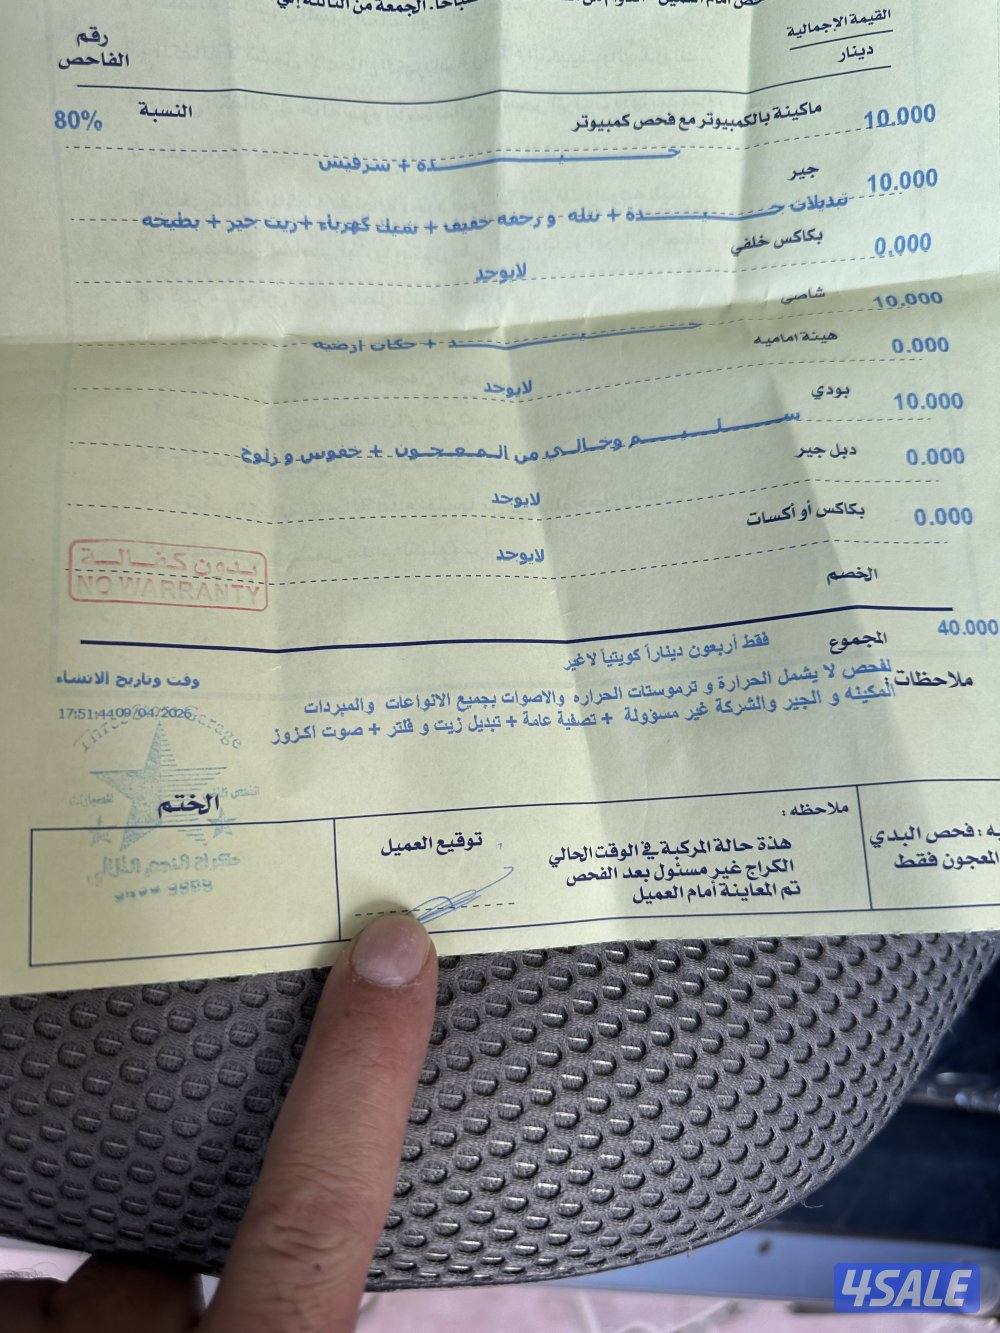 القيمة الإجمالية
دينار
رقم
الفاحص
10.000 ماكينة بالكمبيوتر مع فحص كمبيوتر النسبة 80%
جيدة + شرفتش
10.000 جير
تبديلات جيدة + نتله ورجفه خفيف + شيك كهرباء + زيت جير + بطيخه
0.000 بكاكس خلفي
لايوجد
10.000 شاصي
جيد + حكات ارضيه
0.000 هيئة اماميه
لايوجد
10.000 بودي
سليم وخالي من المعجون + خفوس ورلوخ
0.000 دبل جير
لايوجد
0.000 بكاكس أو أكسات
لايوجد
الخصم
بدون كفالة
NO WARRANTY
40.000 المجموع فقط أربعون ديناراً كويتياً لاغير
ملاحظات لفحص لا يشمل الحرارة و ترموستات الحراره والاصوات بجميع الانواعات والمبردات
لمكينه و الجير والشركة غير مسؤولة + تصفية عامة + تبديل زيت و فلتر + صوت اكزوز
وقت وتاريخ الانشاء
17:51:44 09/04/2026
الختم
ه : فحص البدي
لمعجون فقط
ملاحظه :
هذة حالة المركبة في الوقت الحالي
الكراج غير مسئول بعد الفحص
تم المعاينة أمام العميل
توقيع العميل
4SALE